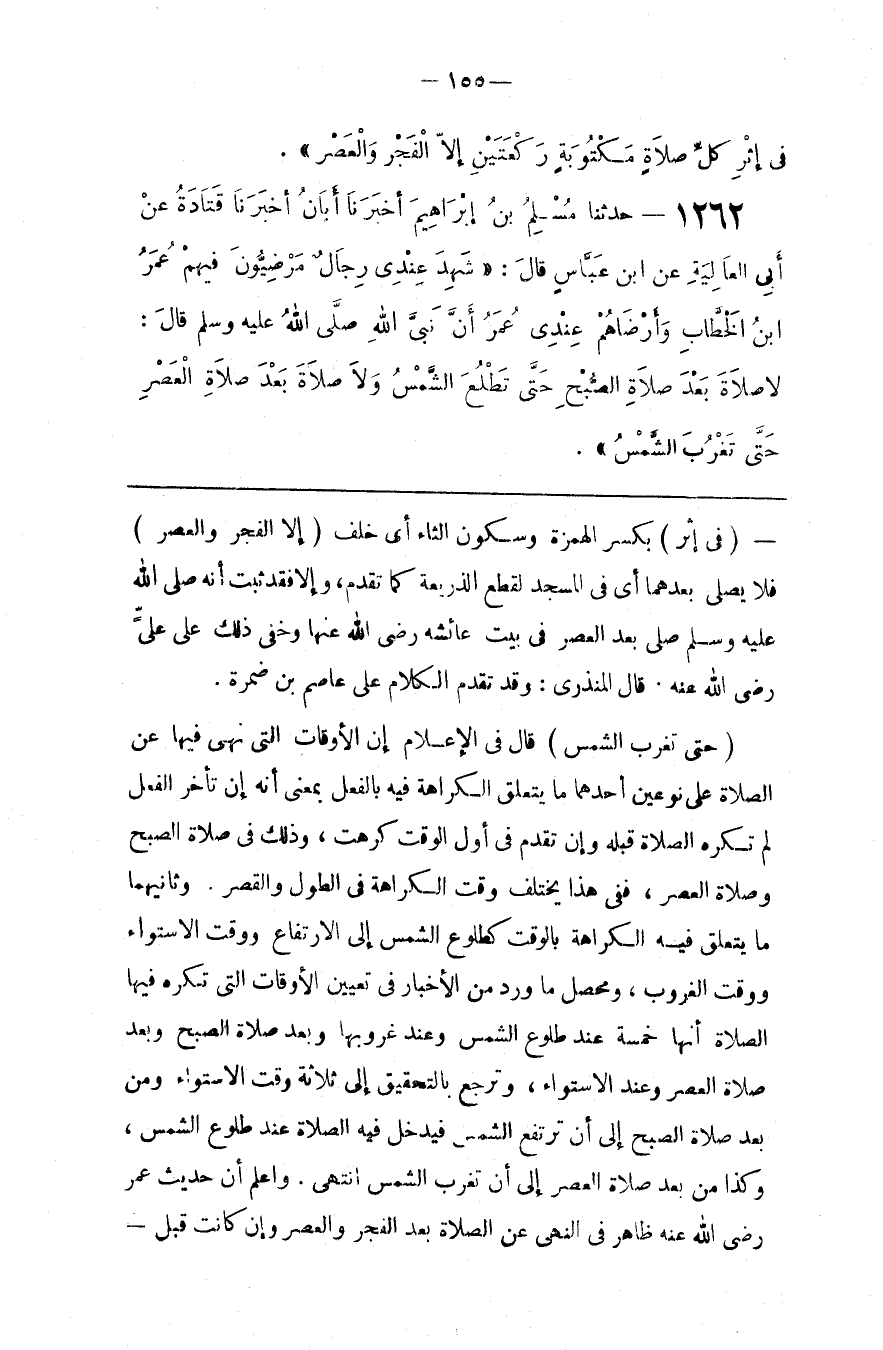 — ١٥٥ —
فى إثْرِ كلِّ صلاَةٍ مَكْتُوبَةٍ رَكْعَتَيْنِ إلاّ الْفَجْرَ وَالْعَصْرَ » .
١٢٦٢ — حدثنا مُسْلِمُ بنُ إبْرَاهِيمَ أخبَرَنَا أَبَانُ أخبَرَنَا قَتَادَةُ عنْ
أَبِى العَالِيَةِ عن ابن عَبَّاسٍ قالَ : « شَهِدَ عِنْدِى رِجالٌ مَرْضِيُّونَ فيهِمْ عُمَرُ
ابنُ الْخَطَّابِ وَأَرْضَاهُمْ عِنْدِى عُمَرُ أنَّ نَبىَّ اللهِ صلَّى اللهُ عليه وسلم قالَ :
لاصلاَةَ بَعْدَ صلاَةِ الصُّبْحِ حَتَّى تَطْلُعَ الشَّمْسُ وَلاَ صلاَةَ بَعْدَ صلاَةِ الْعَصْرِ
حَتَّى تَغْرُبَ الشَّمْسُ » .
— ( فى إثر ) بكسر الهمزة وسكون الثاء أى خلف ( إلا الفجر والعصر )
فلا يصلى بعدهما أى فى المسجد لقطع الذريعة كما تقدم، وإلافقدثبت أنه صلى الله
عليه وسلم صلى بعد العصر فى بيت عائشه رضى الله عنها وخفى ذلك على علىّ
رضى الله عنه . قال المنذرى : وقد تقدم الكلام على عاصم بن ضمرة .
( حتى تغرب الشمس ) قال فى الإعلام إن الأوقات التى نهى فيها عن
الصلاة على نوعين أحدهما ما يتعلق الكراهة فيه بالفعل بمعنى أنه إن تأخر الفعل
لم تكره الصلاة قبله وإن تقدم فى أول الوقت كرهت ، وذلك فى صلاة الصبح
وصلاة العصر ، ففى هذا يختلف وقت الكراهة فى الطول والقصر . وثانيهما
ما يتعلق فيه الكراهة بالوقت كطلوع الشمس إلى الارتفاع ووقت الاستواء
ووقت الغروب ، ومحصل ما ورد من الأخبار فى تعيين الأوقات التى تكره فيها
الصلاة أنها خمسة عند طلوع الشمس وعند غروبها وبعد صلاة الصبح وبعد
صلاة العصر وعند الاستواء ، وترجع بالتحقيق إلى ثلاثة وقت الاستواء ومن
بعد صلاة الصبح إلى أن ترتفع الشمس فيدخل فيه الصلاة عند طلوع الشمس ،
وكذا من بعد صلاة العصر إلى أن تغرب الشمس انتهى . واعلم أن حديث عمر
رضى الله عنه ظاهر فى النهى عن الصلاة بعد الفجر والعصر وإن كانت قبل —